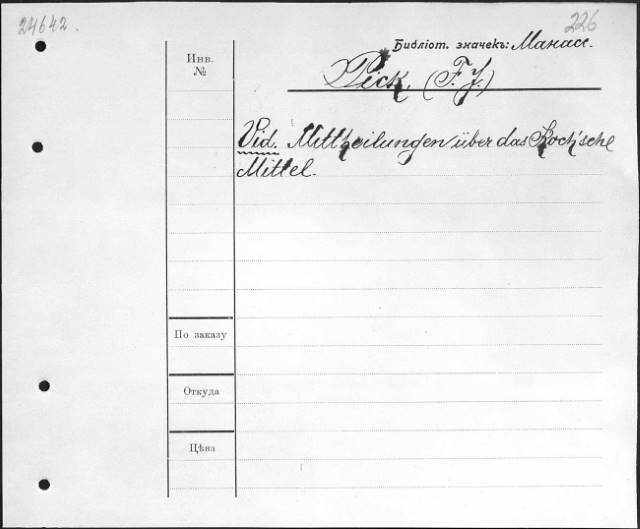 24642.
226
Библіот. значекъ: Манасс.
Инв.
№
*Pick, (F. J.)
Vid. Mittheilungen über das Koch'sche
Mittel.
По заказу
Откуда
Цѣна